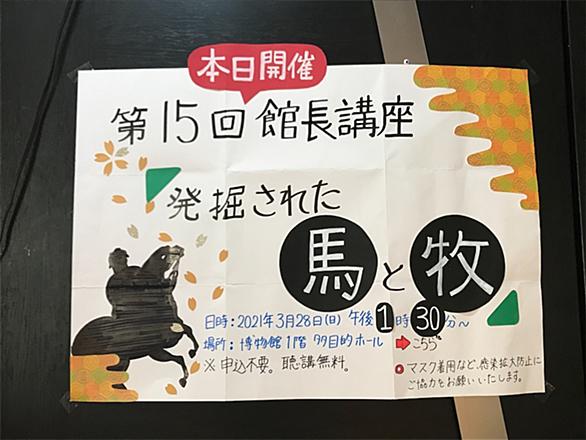 本日開催
第15回 館長講座
発掘された
馬と牧
日時：2021年3月28日(日) 午後1時30分～
場所：博物館1階 多目的ホール ➡こちら
※申込不要。聴講無料。
●マスク着用など、感染拡大防止に
ご協力をお願いいたします。